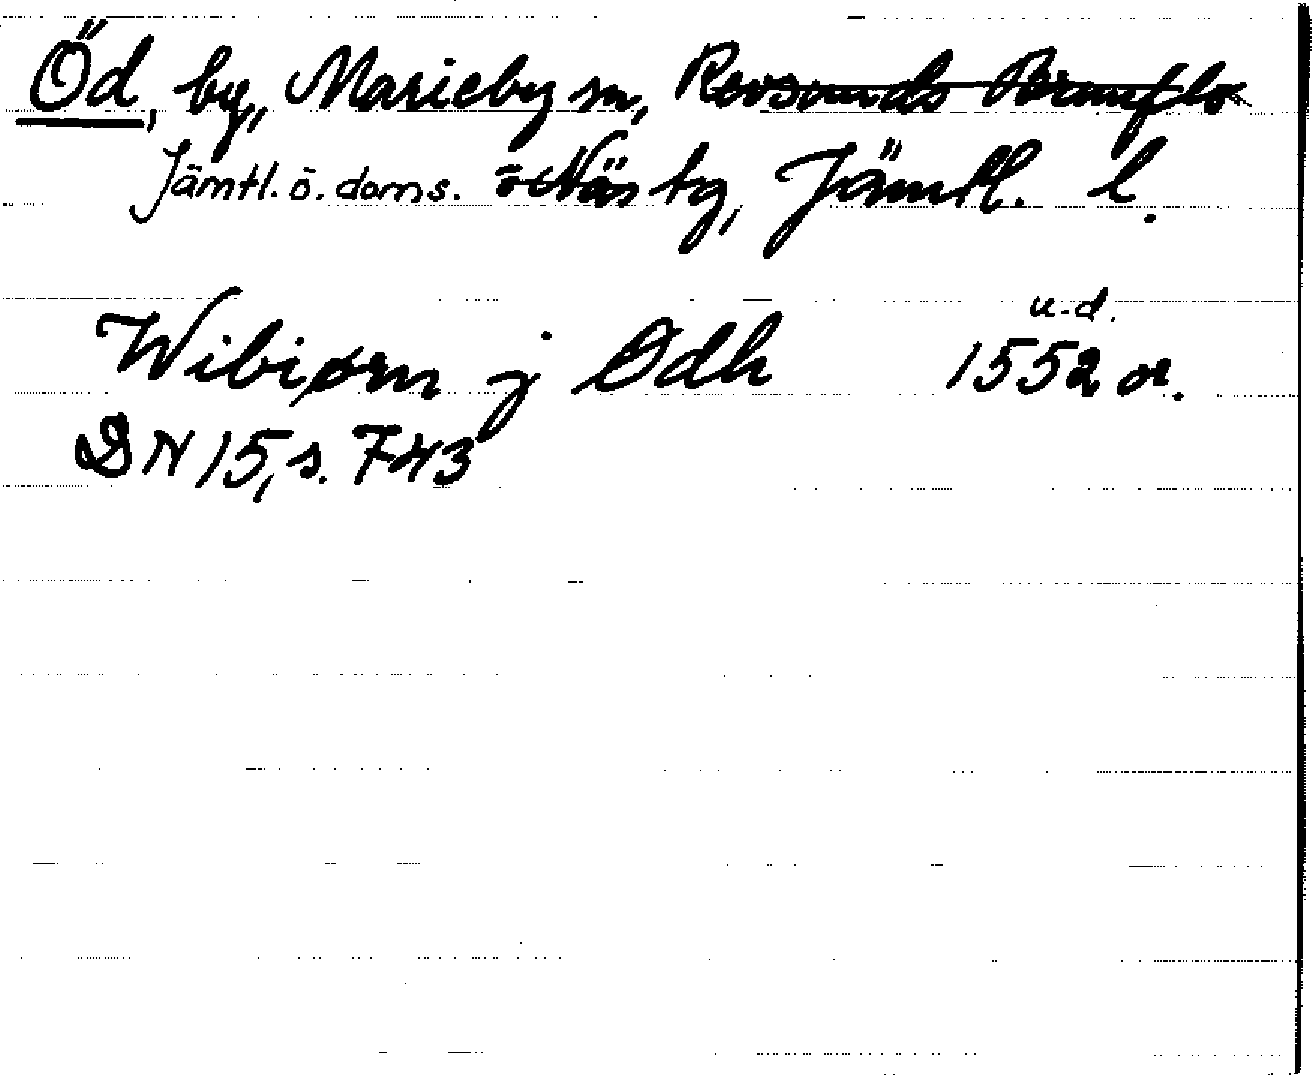 Öd, by, Marieby sn, Revsunds Brunflo
Jämtl. ö. doms. o Näs tg, Jämtl. l.
u.d.
Wibiørn j Ødh 1552 or.
DN 15, s. 743